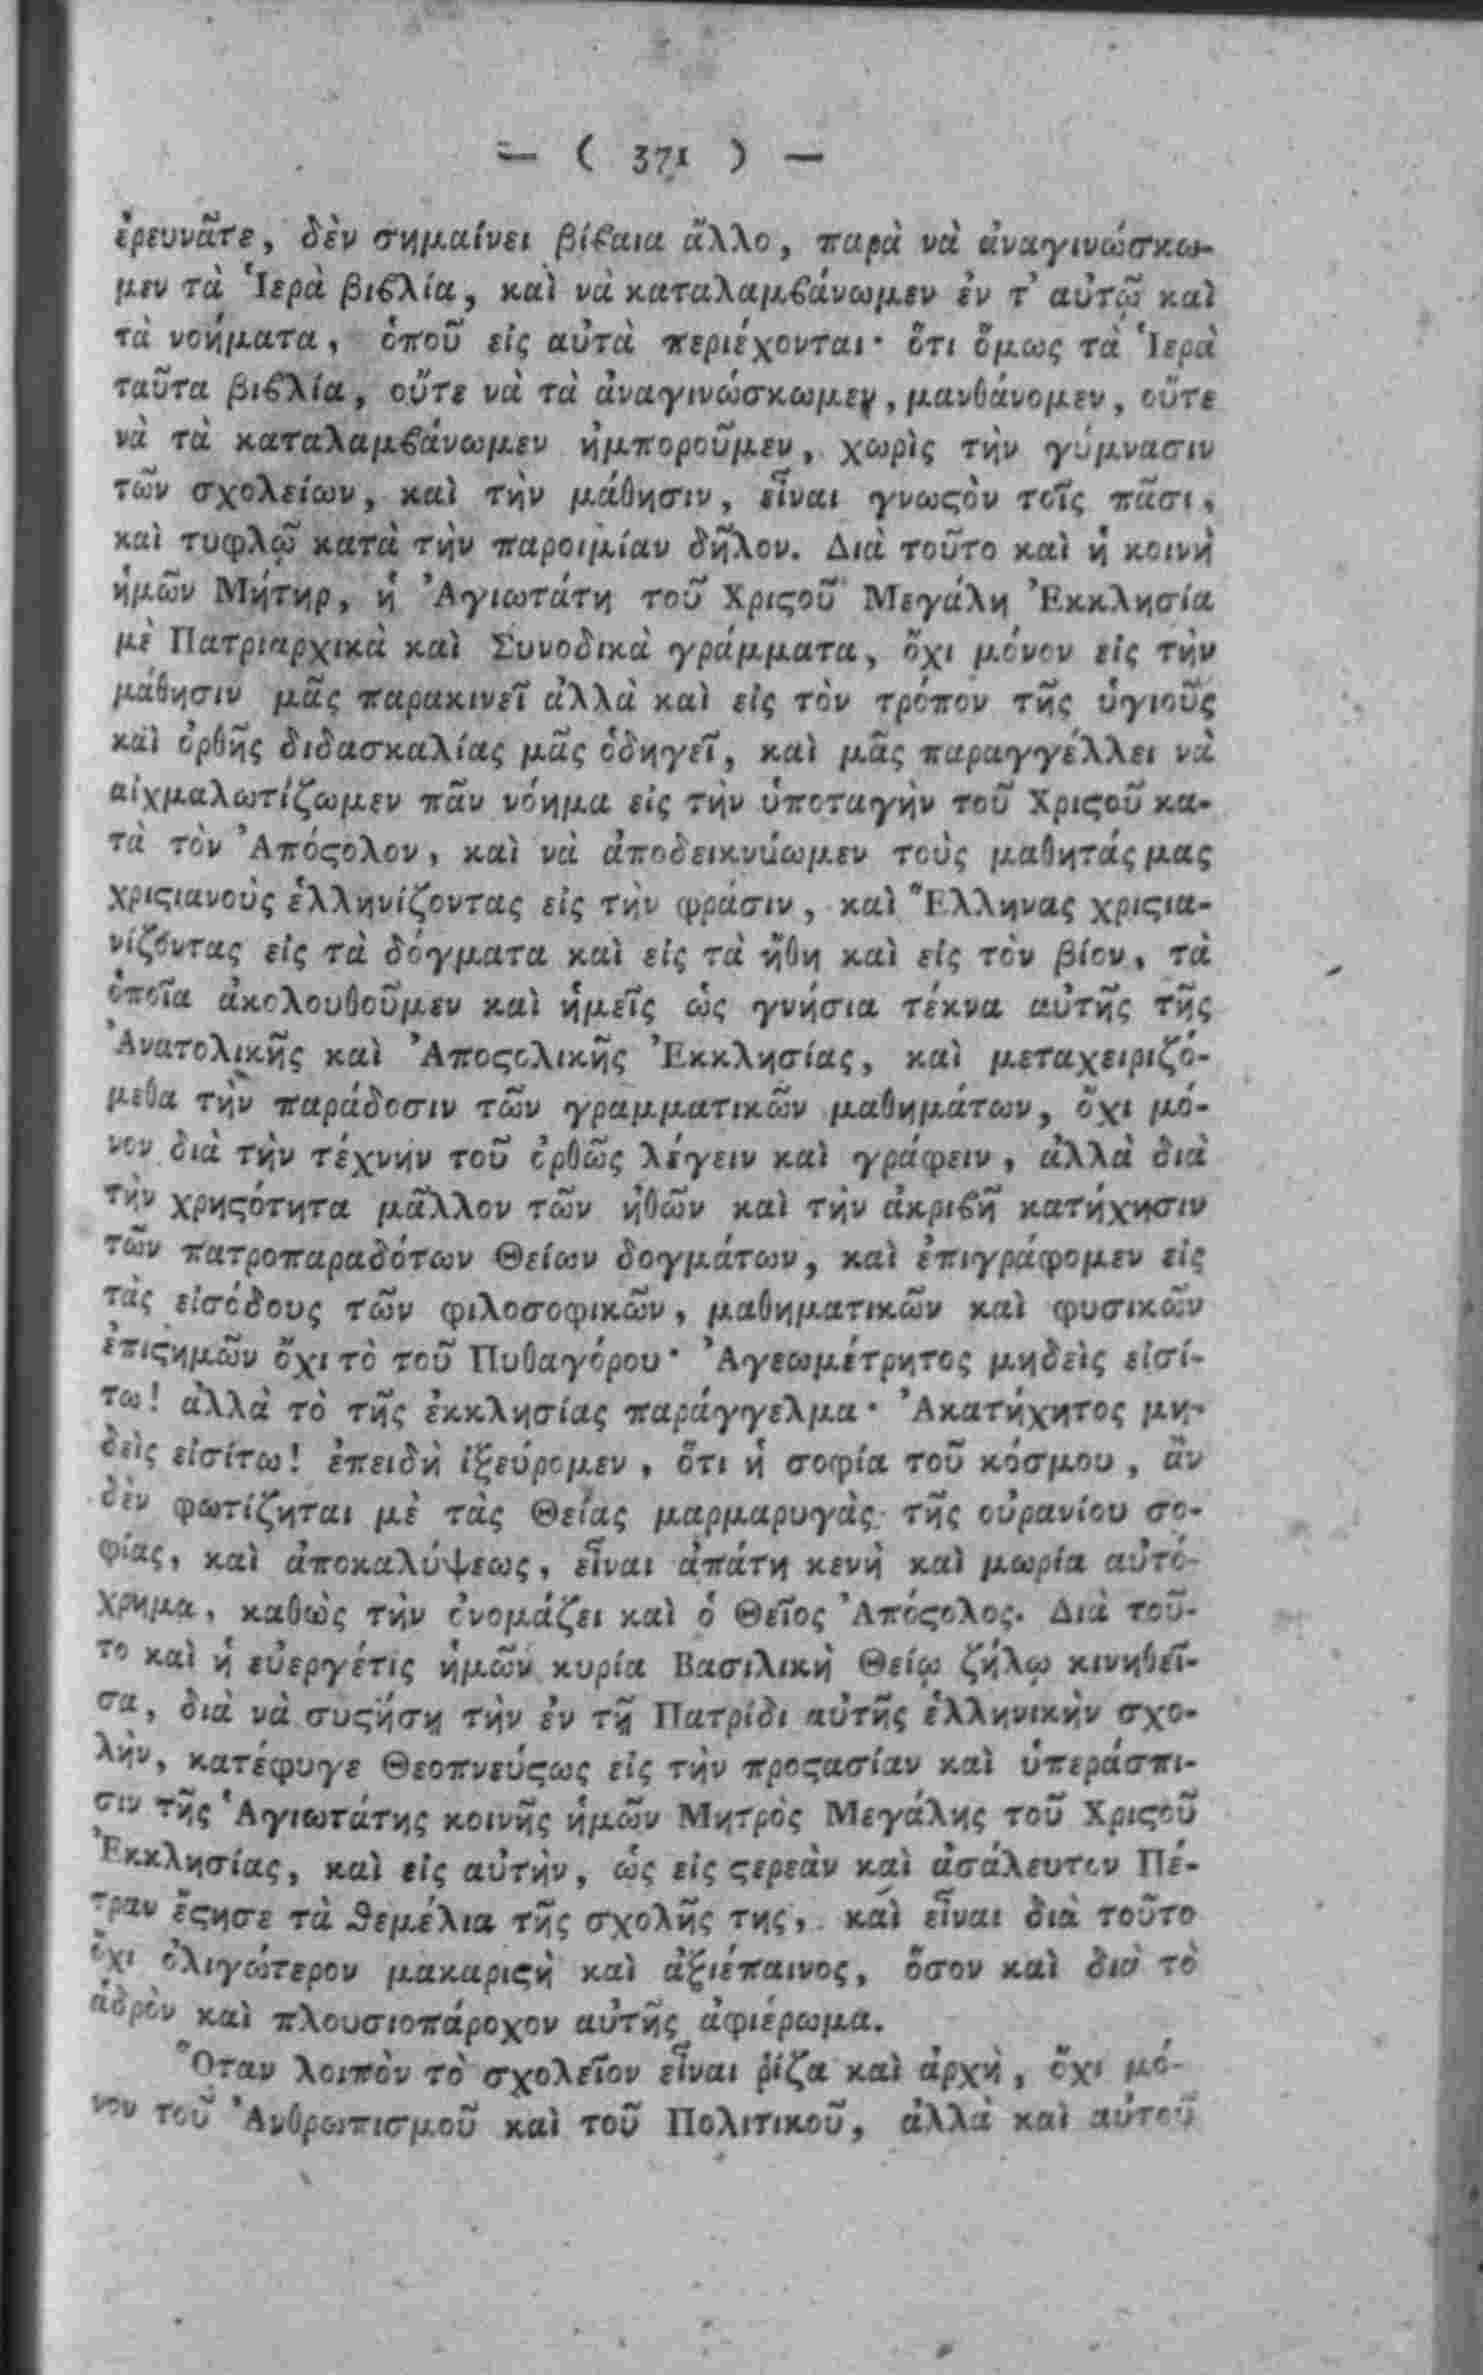 — ( 371 ) —
ἐρευνᾶτε, δὲν σημαίνει βέϐαια ἄλλο, παρὰ νὰ ἀναγινώσκω-
μεν τὰ Ἱερὰ βιϐλία, καὶ νὰ καταλαμϐάνωμεν ἐν τ' αὐτῷ καὶ
τὰ νοήματα, ὁποῦ εἰς αὐτὰ περιέχονται· ὅτι ὅμως τὰ Ἱερὰ
ταῦτα βιϐλία, οὔτε νὰ τὰ ἀναγινώσκωμεν, μανθάνομεν, οὔτε
νὰ τὰ καταλαμϐάνωμεν ἠμποροῦμεν, χωρὶς τὴν γύμνασιν
τῶν σχολείων, καὶ τὴν μάθησιν, εἶναι γνωςὸν τοῖς πᾶσι,
καὶ τυφλῷ κατὰ τὴν παροιμίαν δῆλον. Διὰ τοῦτο καὶ ἡ κοινὴ
ἡμῶν Μήτηρ, ἡ Ἁγιωτάτη τοῦ Χριςοῦ Μεγάλη Ἐκκλησία
μὲ Πατριαρχικὰ καὶ Συνοδικὰ γράμματα, ὄχι μόνον εἰς τὴν
μάθησιν μᾶς παρακινεῖ ἀλλὰ καὶ εἰς τὸν τρόπον τῆς ὑγιοῦς
καὶ ὀρθῆς διδασκαλίας μᾶς ὁδηγεῖ, καὶ μᾶς παραγγέλλει νὰ
αἰχμαλωτίζωμεν πᾶν νόημα εἰς τὴν ὑποταγὴν τοῦ Χριςοῦ κα-
τὰ τὸν Ἀπόςολον, καὶ νὰ ἀποδεικνύωμεν τοὺς μαθητάς μας
χριςιανοὺς ἑλληνίζοντας εἰς τὴν φράσιν, καὶ Ἕλληνας χριςια-
νίζοντας εἰς τὰ δόγματα καὶ εἰς τὰ ἤθη καὶ εἰς τὸν βίον, τὰ
ὁποῖα ἀκολουθοῦμεν καὶ ἡμεῖς ὡς γνήσια τέκνα αὐτῆς τῆς
Ἀνατολικῆς καὶ Ἀποςολικῆς Ἐκκλησίας, καὶ μεταχειριζό-
μεθα τὴν παράδοσιν τῶν γραμματικῶν μαθημάτων, ὄχι μό-
νον διὰ τὴν τέχνην τοῦ ὀρθῶς λέγειν καὶ γράφειν, ἀλλὰ διὰ
τὴν χρηςότητα μᾶλλον τῶν ἠθῶν καὶ τὴν ἀκριϐῆ κατήχησιν
τῶν πατροπαραδότων Θείων δογμάτων, καὶ ἐπιγράφομεν εἰς
τὰς εἰσόδους τῶν φιλοσοφικῶν, μαθηματικῶν καὶ φυσικῶν
ἐπιςημῶν ὄχι τὸ τοῦ Πυθαγόρου· Ἀγεωμέτρητος μηδεὶς εἰσί-
τω! ἀλλὰ τὸ τῆς ἐκκλησίας παράγγελμα· Ἀκατήχητος μη-
δεὶς εἰσίτω! ἐπειδὴ ἰξεύρομεν, ὅτι ἡ σοφία τοῦ κόσμου, ἂν
δὲν φωτίζηται μὲ τὰς Θείας μαρμαρυγὰς τῆς οὐρανίου σο-
φίας, καὶ ἀποκαλύψεως, εἶναι ἀπάτη κενὴ καὶ μωρία αὐτό-
χρημα, καθὼς τὴν ὀνομάζει καὶ ὁ Θεῖος Ἀπόςολος. Διὰ τοῦ-
το καὶ ἡ εὐεργέτις ἡμῶν κυρία Βασιλικὴ Θείῳ ζήλῳ κινηθεῖ-
σα, διὰ νὰ συςήσῃ τὴν ἐν τῇ Πατρίδι αὐτῆς ἑλληνικὴν σχο-
λὴν, κατέφυγε Θεοπνεύςως εἰς τὴν προςασίαν καὶ ὑπεράσπι-
σιν τῆς Ἁγιωτάτης κοινῆς ἡμῶν Μητρὸς Μεγάλης τοῦ Χριςοῦ
Ἐκκλησίας, καὶ εἰς αὐτὴν, ὡς εἰς ςερεὰν καὶ ἀσάλευτον Πέ-
τραν ἔςησε τὰ θεμέλια τῆς σχολῆς της, καὶ εἶναι διὰ τοῦτο
ὄχι ὀλιγώτερον μακαριςὴ καὶ ἀξιέπαινος, ὅσον καὶ διὰ τὸ
ἁδρὸν καὶ πλουσιοπάροχον αὐτῆς ἀφιέρωμα.
Ὅταν λοιπὸν τὸ σχολεῖον εἶναι ῥίζα καὶ ἀρχὴ, ὄχι μό-
νον τοῦ Ἀνθρωπισμοῦ καὶ τοῦ Πολιτικοῦ, ἀλλὰ καὶ αὐτοῦ